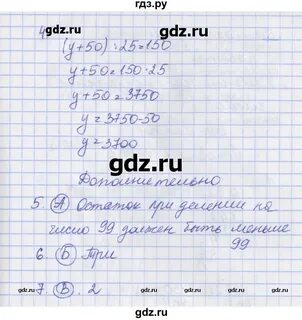 gdz.ru
4
(y+50) : 25 = 150
y+50 = 150 · 25
y+50 = 3750
y = 3750-50
y = 3700
gdz.ru
gdz.ru
Дополнительно
5. А Остаток при делении на
число 99 должен быть меньше
99
gdz.ru
6. Б Три
7. В. 2
gdz.ru